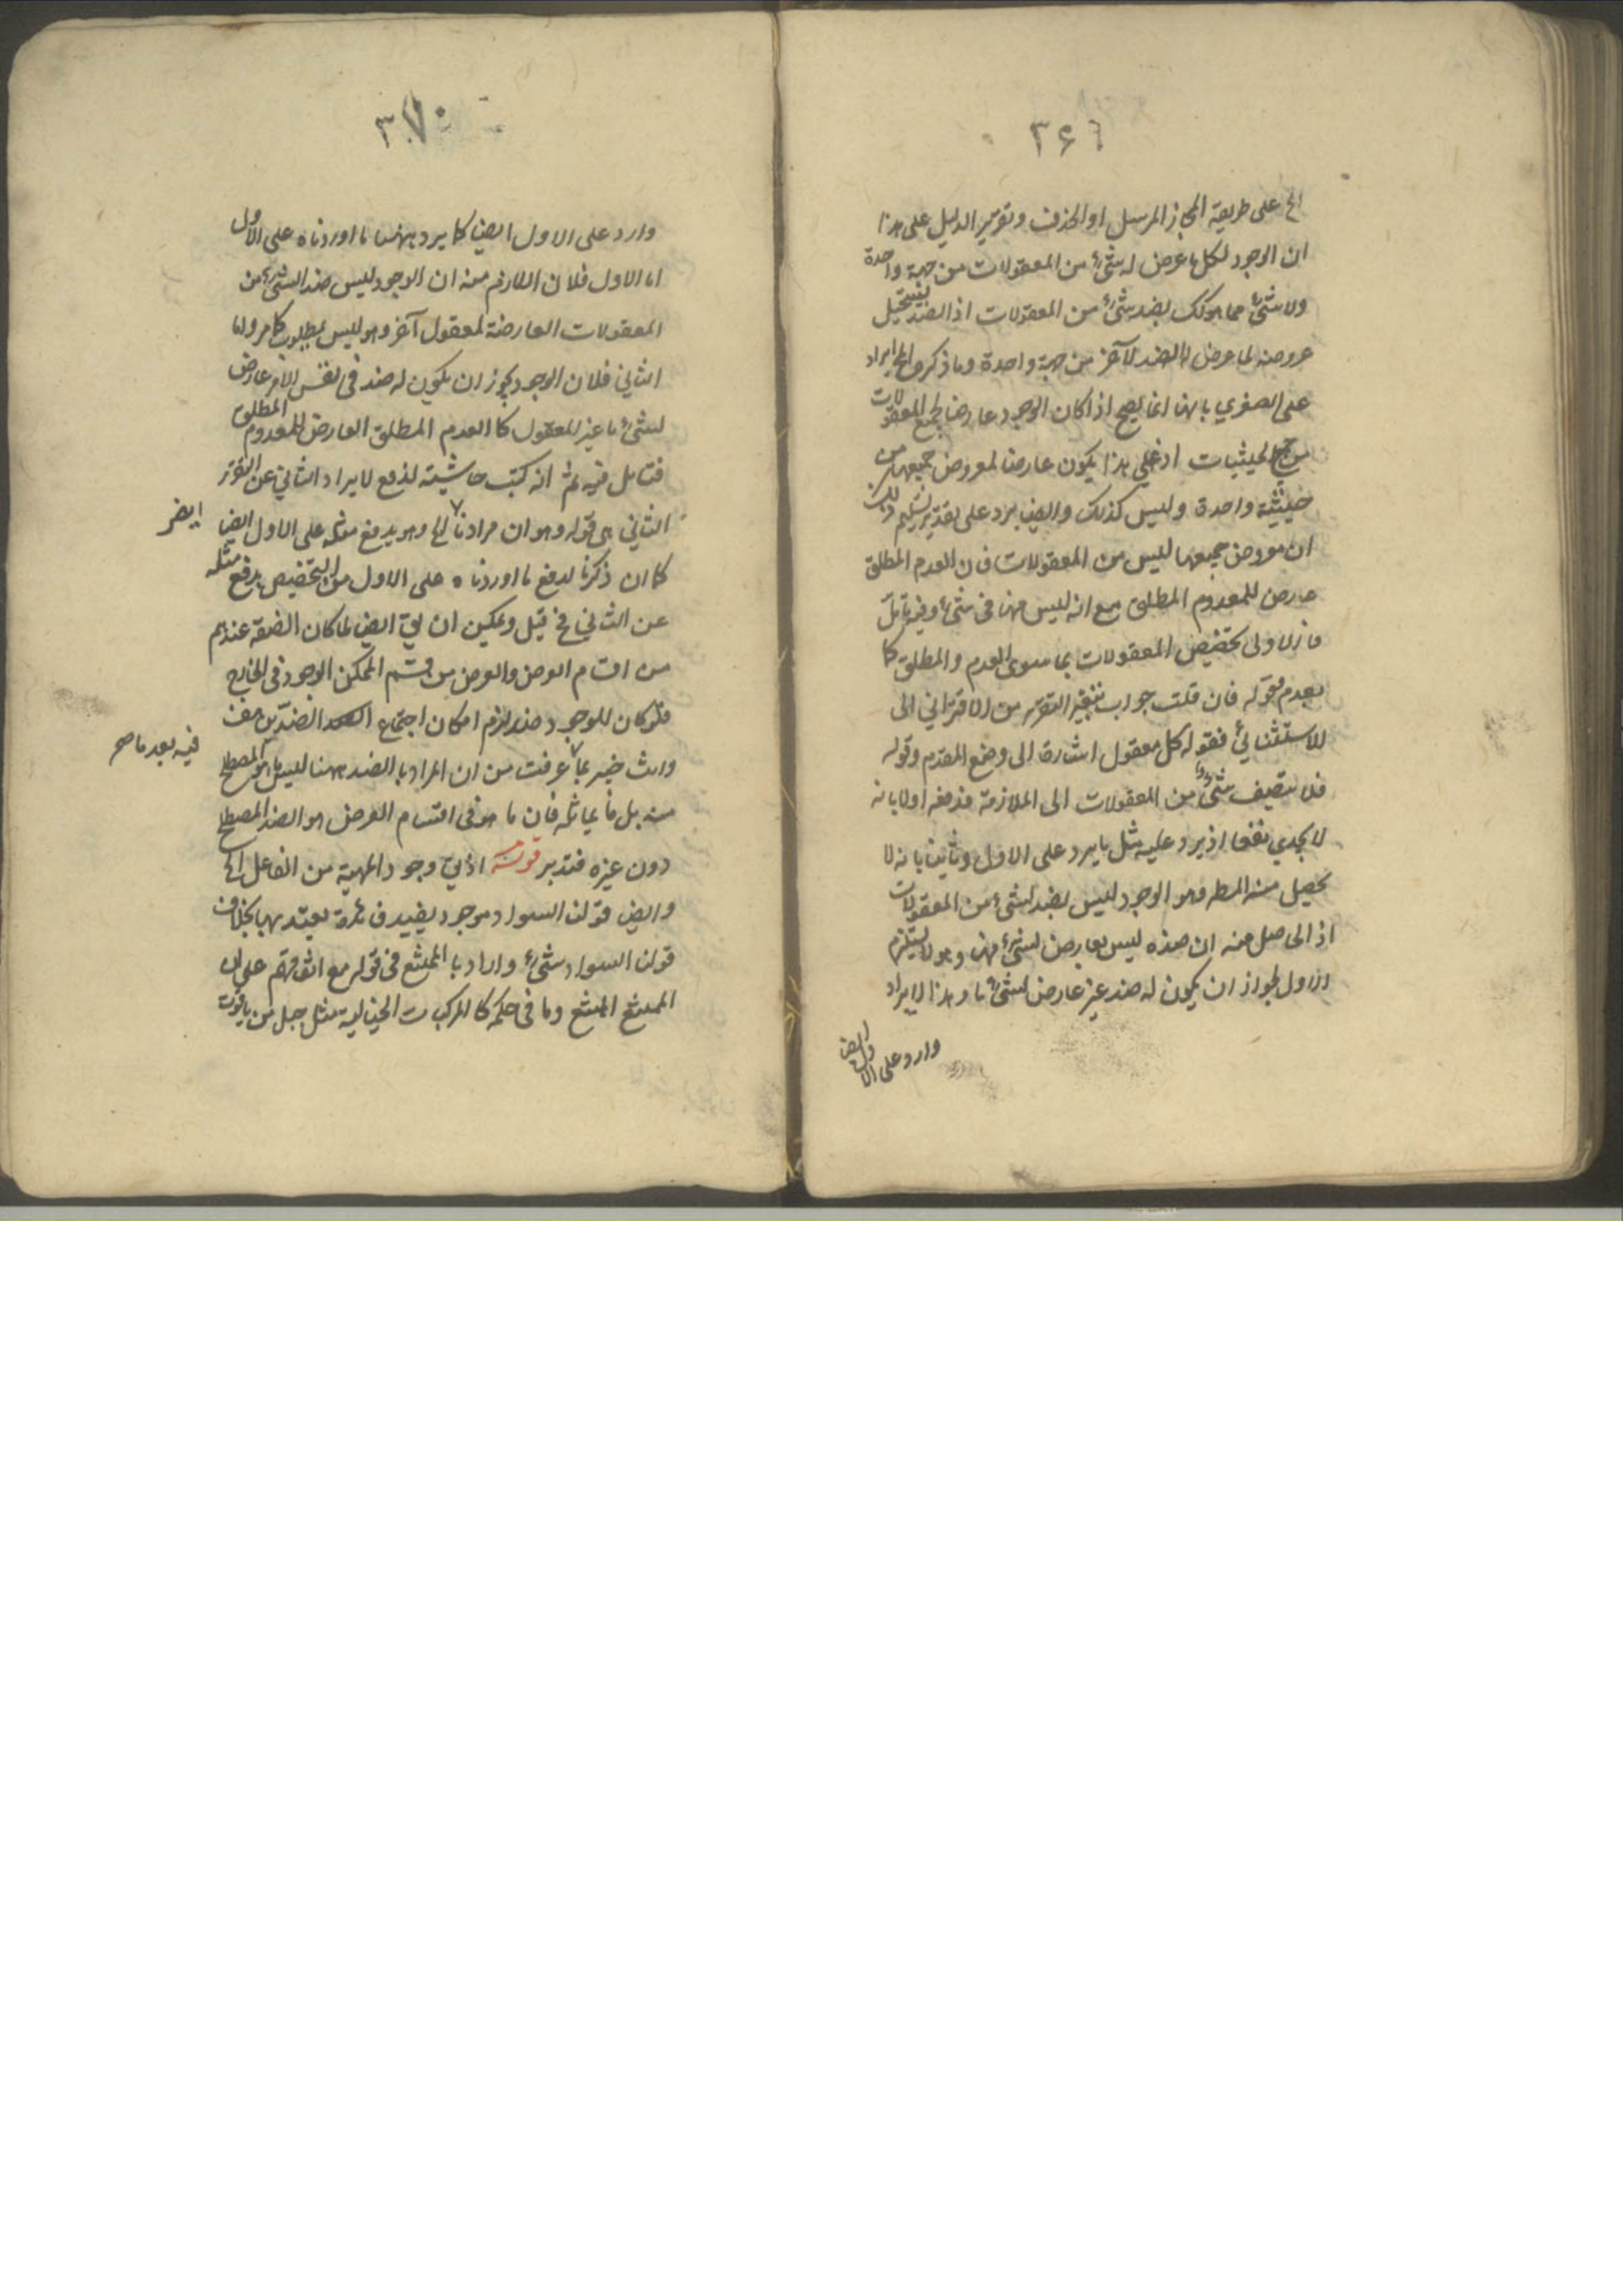 ٣٤٦
الخ على طريقة المجاز المرسل او الحذف وتقرير الدليل على هذا
ان الوجود لكل ما عرض له شئ من المعقولات من جهة واحدة
ولا شئ مما هو كك بضد شئ من المعقولات اذ الضد يستحيل
عروضه لما عرض له الضد الآخر من جهة واحدة وما ذكروه ايراد
على الصغرى بانها انما يصح اذا كان الوجود عارضا لجميع المعقولات
من جميع الحيثيات اذ على هذا يكون عارضا لمعروض جميعها من
حيثية واحدة وليس كذلك وايضا يرد على تقدير تسليم ذلك
ان معروض جميعها ليس من المعقولات فان العدم المطلق
عارض للمعدوم المطلق مع انه ليس منها فى شئ وفيه تأمل
فالاولى تخصيص المعقولات بما سوى العدم والمطلق كما
بعدم قوله فان قلت جواب بتغيير التقرير من الاقترانى الى
الاستثنائى فقوله كل معقول اشارة الى وضع المقدم وقوله
فلا يتصف شئ من المعقولات الى الملازمة فدفعه اولا بانه
لا يجدى نفعا اذ يرد عليه مثل ما يرد على الاول وثانيا بانه لا
يحصل منه المط وهو الوجود ليس بضد لشئ من المعقولات
اذ الحاصل منه ان ضده ليس بعارض لشئ منها وهو لا يستلزم
الاول لجواز ان يكون له ضد غير عارض لشئ ما وهذا الايراد
وارد على الاول ايضا
٣٧٠
وارد على الاول ايضا كما يرد ههنا ما اوردناه على الاول
اما الاول فلان اللازم منه ان الوجود ليس ضد الشئ من
المعقولات العارضة لمعقول آخر وهو ليس بمطلوب كما مر واما
الثانى فلان الوجود يجوز ان يكون له ضد فى نفس الامر عارض
لشئ ما غير المعقول كالعدم المطلق العارض للمعدوم المطلق
فتامل فيه ثم انه كتب حاشية لدفع الايراد الثانى عن التقرير
الثانى هى قوله وهو ان مرادنا الخ وهو يدفع مثله على الاول ايضا
ايضر
كما ان ذكرنا لدفع ما اوردناه على الاول من التخصيص يدفع مثله
عن الثانى فخ قيل ويمكن ان يق ايضا لما كان الضد عندهم
من اقسام العرض والعرض من قسم الممكن الوجود فى الخارج
فلو كان للوجود ضد لزم امكان اجتماع الضدين معا
فيه بعد ما صح
وانت خبير بما عرفت من ان المراد بالضد ههنا ليس ما هو المصطلح
منه بل ما يماثله فان ما هو فى اقسام العرض هو الضد المصطلح
دون غيره فتدبر قوله اذ يق وجود المهية من الفاعل الخ
وايض قولنا السواد موجود يفيد فائدة يعتد بها بخلاف
قولنا السواد شئ واراد بالممتنع فى قوله مع اتفاقهم على ان
الممتنع الممتنع وما فى حكمه كالمركبات الخيالية مثل جبل من ياقوت